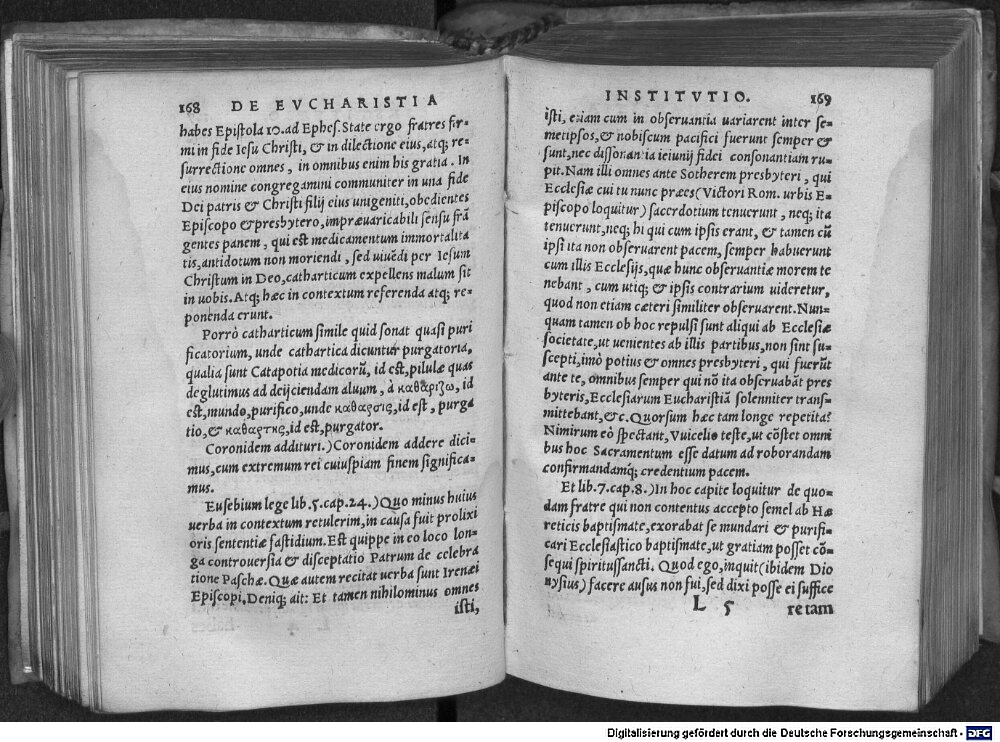 168 DE EVCHARISTIA
habes Epistola 10. ad Ephes. State ergo fratres fir-
mi in fide Iesu Christi, & in dilectione eius, atq; re-
surrectione omnes, in omnibus enim his gratia. In
eius nomine congregamini communiter in una fide
Dei patris & Christi filij eius unigeniti, obedientes
Episcopo & presbytero, impræuaricabili sensu frā
gentes panem, qui est medicamentum immortalita
tis, antidotum non moriendi, sed uiuēdi per Iesum
Christum in Deo, catharticum expellens malum sit
in uobis. Atq; hæc in contextum referenda atq; re-
ponenda erunt.
Porrò catharticum simile quid sonat quasi puri
ficatorium, unde cathartica dicuntur purgatoria,
qualia sunt Catapotia medicorū, id est, pilulæ quas
deglutimus ad deijciendam aluum, à καθαρίζω, id
est, mundo, purifico, unde καθαρσις, id est, purga
tio, & καθαρτης, id est, purgator.
Coronidem addituri.) Coronidem addere dici-
mus, cum extremum rei cuiuspiam finem significa-
mus.
Eusebium lege lib. 5. cap. 24.) Quo minus huius
uerba in contextum retulerim, in causa fuit prolixi
oris sententiæ fastidium. Est quippe in eo loco lon-
ga controuersia & disceptatio Patrum de celebra
tione Paschæ. Quæ autem recitat uerba sunt Irenæi
Episcopi, Deniq; ait: Et tamen nihilominus omnes
isti,
INSTITVTIO. 169
isti, etiam cum in obseruantia uariarent inter se-
metipsos, & nobiscum pacifici fuerunt semper &
sunt, nec dissonantia ieiunij fidei consonantiam ru-
pit. Nam illi omnes ante Sotherem presbyteri, qui
Ecclesiæ cui tu nunc præes (Victori Rom. urbis E-
piscopo loquitur) sacerdotium tenuerunt, neq; ita
tenuerunt, neq; hi qui cum ipsis erant, & tamen cū
ipsi ita non obseruarent pacem, semper habuerunt
cum illis Ecclesijs, quæ hunc obseruantiæ morem te
nebant, cum utiq; & ipsis contrarium uideretur,
quod non etiam cæteri similiter obseruarent. Nun-
quam tamen ob hoc repulsi sunt aliqui ab Ecclesiæ
societate, ut uenientes ab illis partibus, non sint su-
scepti, imò potius & omnes presbyteri, qui fuerūt
ante te, omnibus semper qui nō ita obseruabāt pres
byteris, Ecclesiarum Eucharistiā solenniter trans-
mittebant, &c. Quorsum hæc tam longe repetita?
Nimirum eò spectant, Vuicelio teste, ut cōstet omni
bus hoc Sacramentum esse datum ad roborandam
confirmandamq; credentium pacem.
Et lib. 7. cap. 8.) In hoc capite loquitur de quo-
dam fratre qui non contentus accepto semel ab Hæ
reticis baptismate, exorabat se mundari & purifi-
cari Ecclesiastico baptismate, ut gratiam posset cō-
sequi spiritussancti. Quod ego, inquit (ibidem Dio
nysius) facere ausus non fui, sed dixi posse ei suffice
L 5 re tam
Digitalisierung gefördert durch die Deutsche Forschungsgemeinschaft - DFG